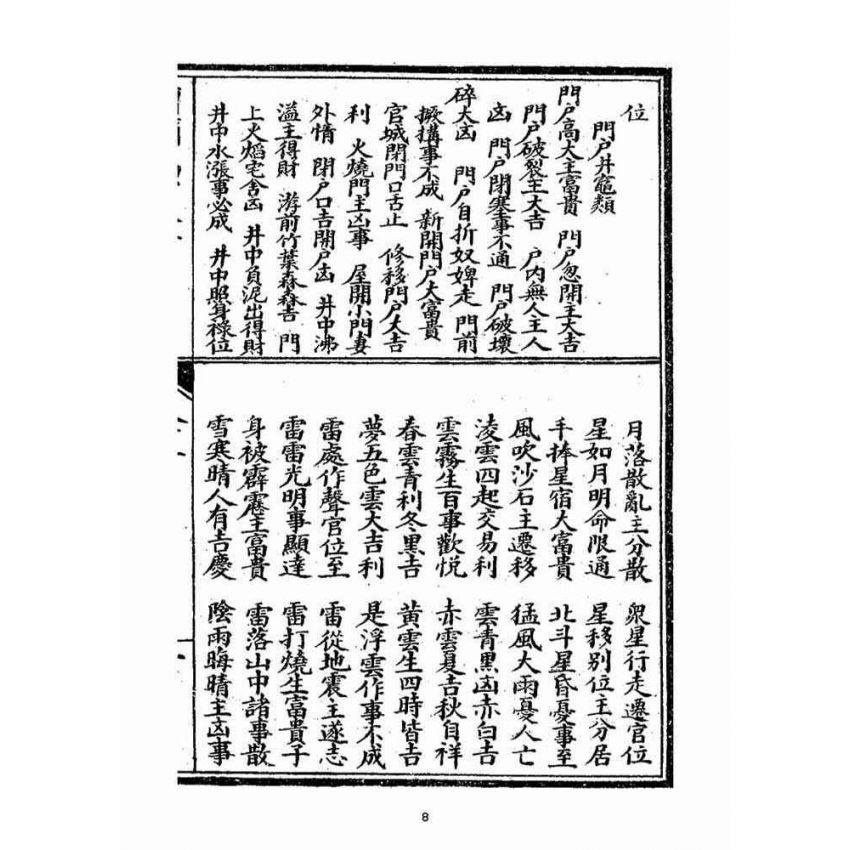 位
門户井竈類
門户高大主富貴　門户忽開主大吉
門户破裂主大吉　户内無人主人
凶　門户閉塞事不通　門户破壞
碎大凶　門户自折奴婢走　門前
撅搆事不成　新開門户大富貴
官城閉門口舌止　修移門户大吉
利　火燒門主凶事　屋開小門妻
外情　閉户口吉開戸凶　井中沸
溢主得財　游前竹葉森森吉　門
上火焰宅舍凶　井中負泥出得財
井中水漲事必成　井中照身祿位
月落散亂主分散　衆星行走遷官位
星如月明命限通　星移别位主分居
手捧星宿大富貴　北斗星昏憂事至
風吹沙石主遷移　猛風大雨憂人亡
淩雲四起交易利　雲青黒凶赤白吉
雲霧生百事歡悦　赤雲夏吉秋自祥
春雲青利冬黒吉　黄雲生四時皆吉
夢五色雲大吉利　是浮雲作事不成
雷處作聲官位至　雷從地震主遂志
雷雷光明事顯達　雷打燒生富貴子
身被霹靂主富貴　雷落山中諸事散
雪寒晴人有吉慶　陰雨晦晴主凶事
8